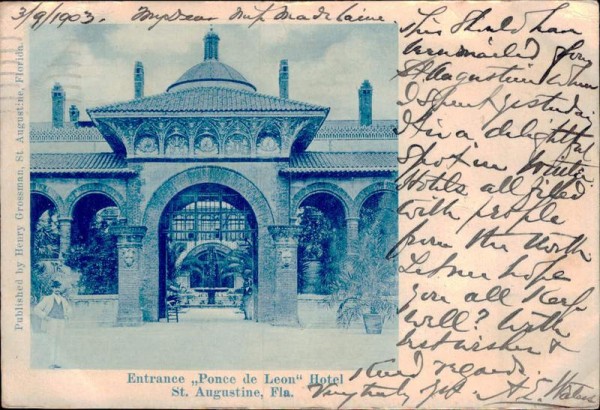 3/9/1903. My dear Miss Madeleine
This should have
been mailed from
St Augustine when
I spent yesterday
It is a delightful
spot in winter
Hotels all filled
with people
from the North
Let me hope
you all keep
well? With
best wishes &
kind regards.
Very truly yrs A. E.
Published by Henry Grossman, St. Augustine, Florida.
Entrance „Ponce de Leon“ Hotel
St. Augustine, Fla.